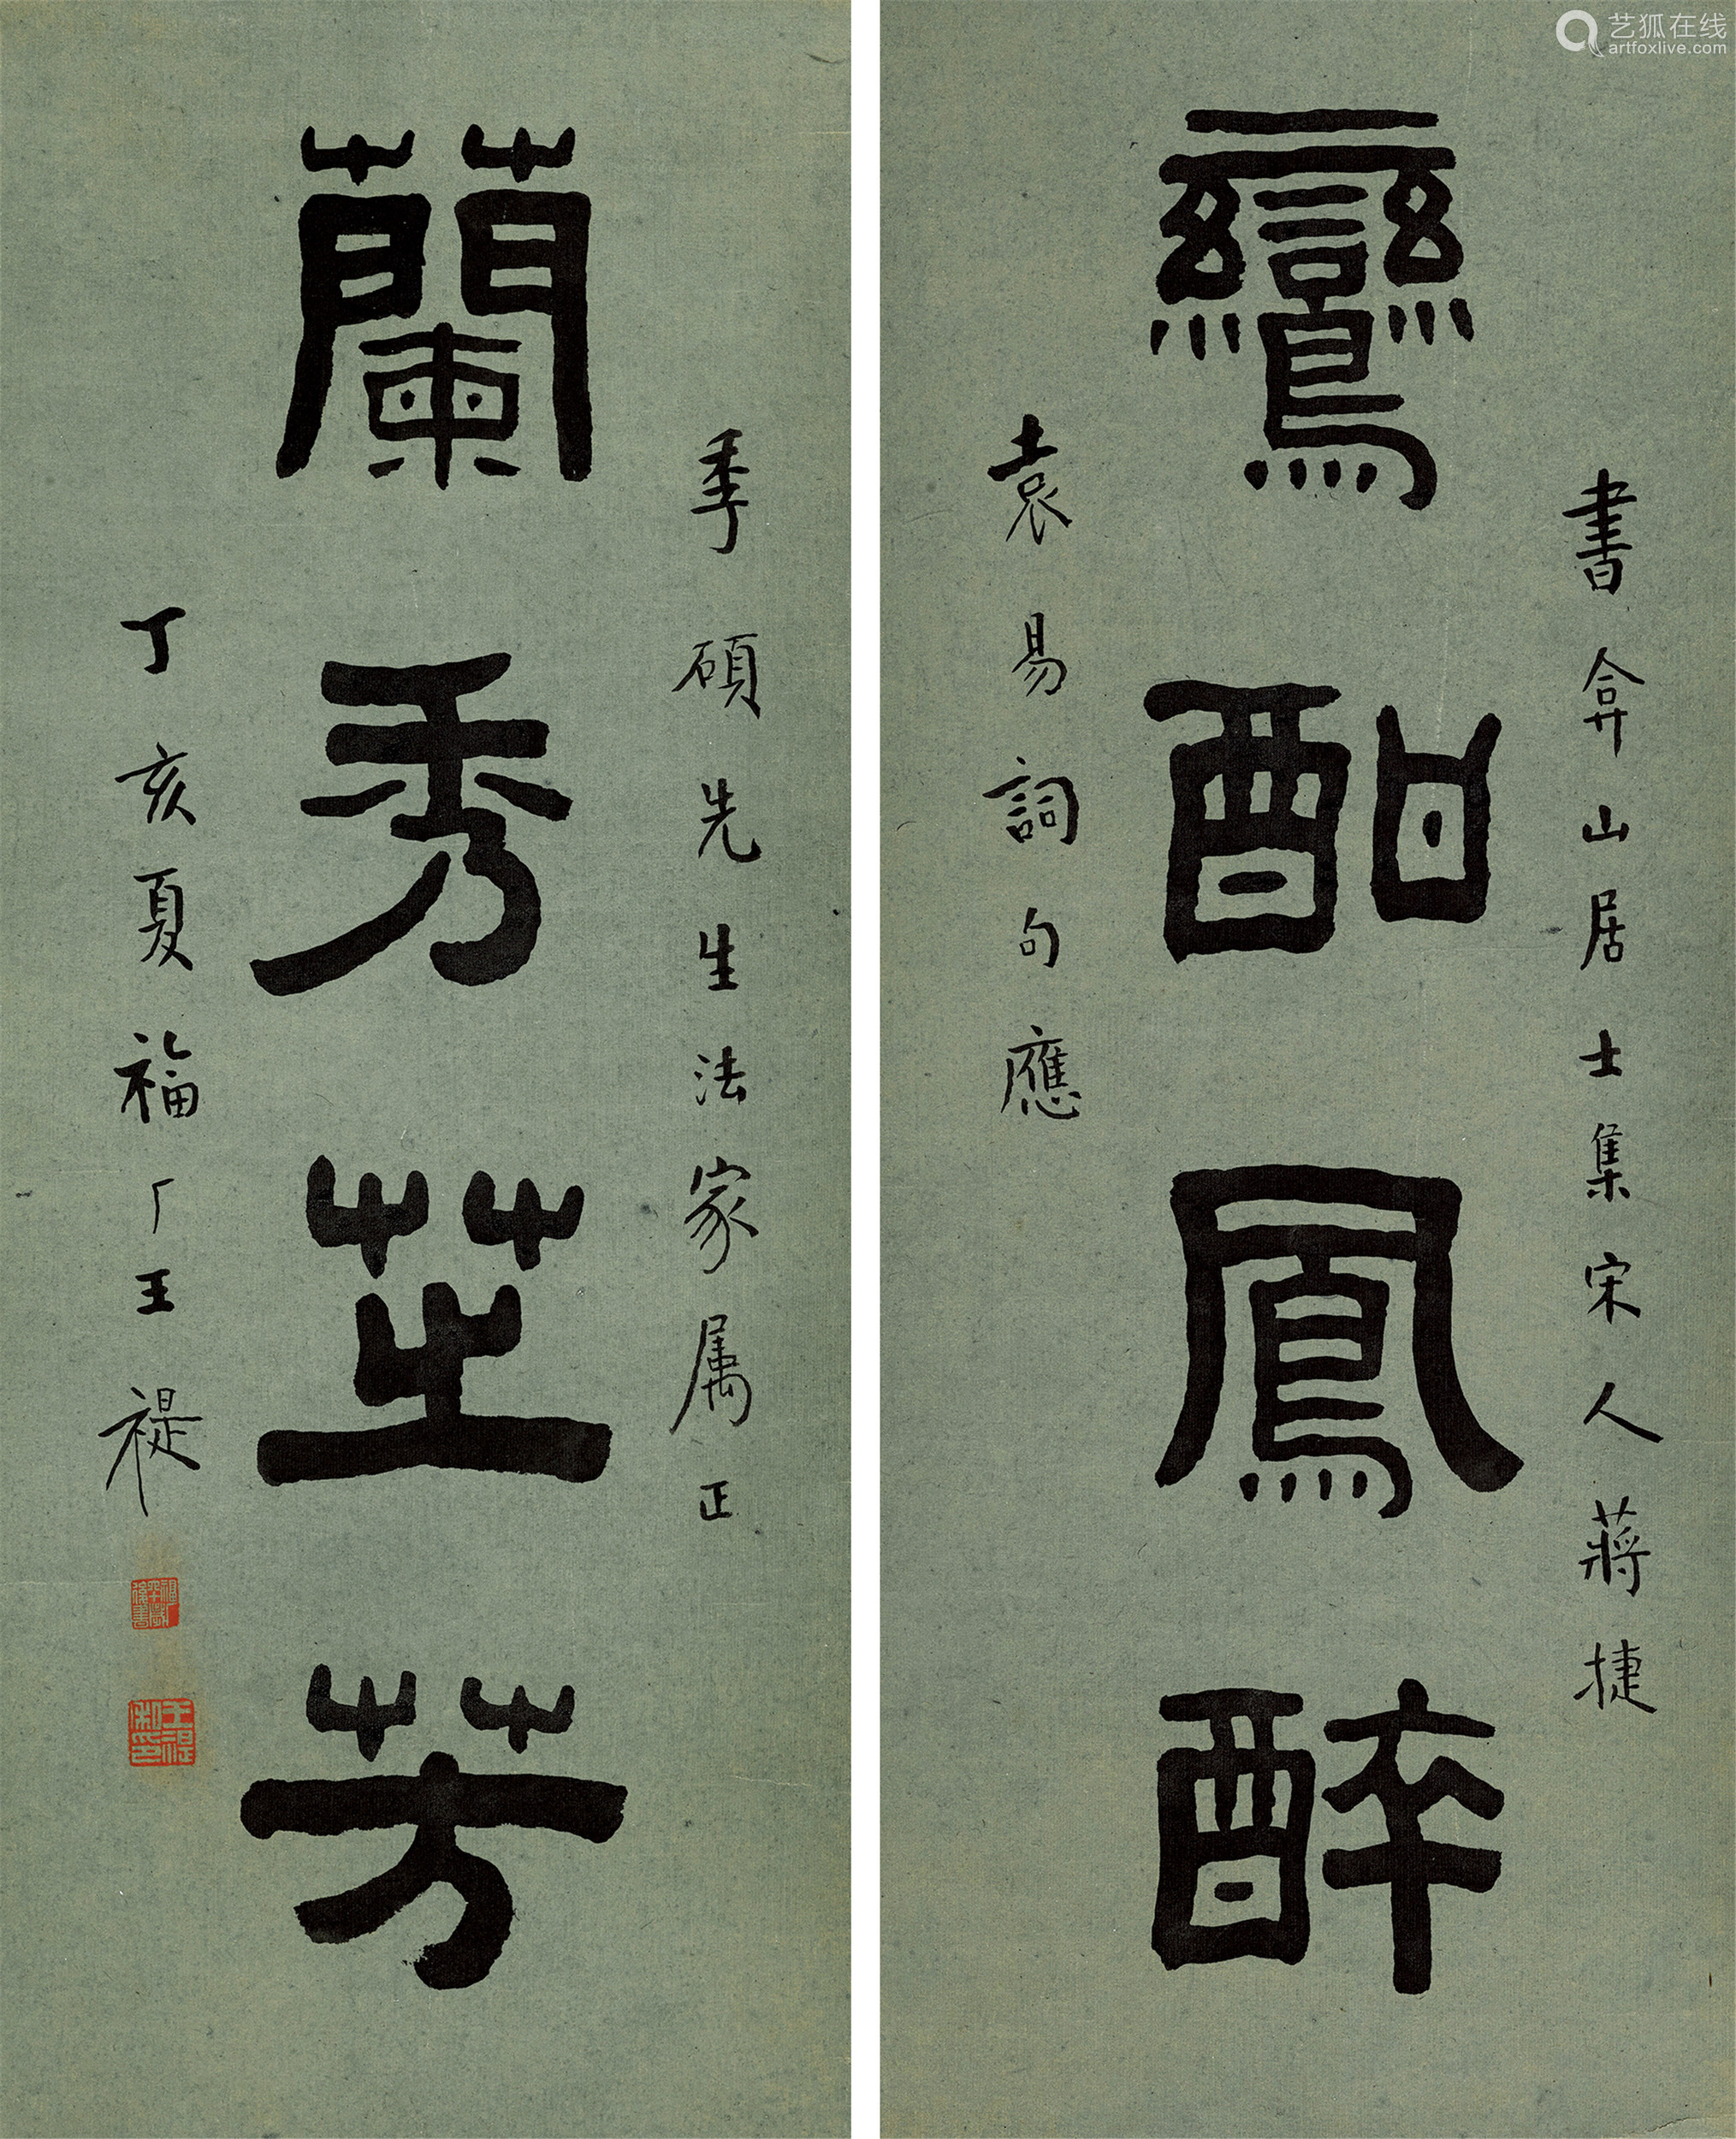 艺狐在线
artfoxlive.com
書弇山居士集宋人蔣捷
鸞酣鳳醉
袁易詞句應
季碩先生法家属正
蘭秀芝芳
丁亥夏福厂王禔
王禔私印